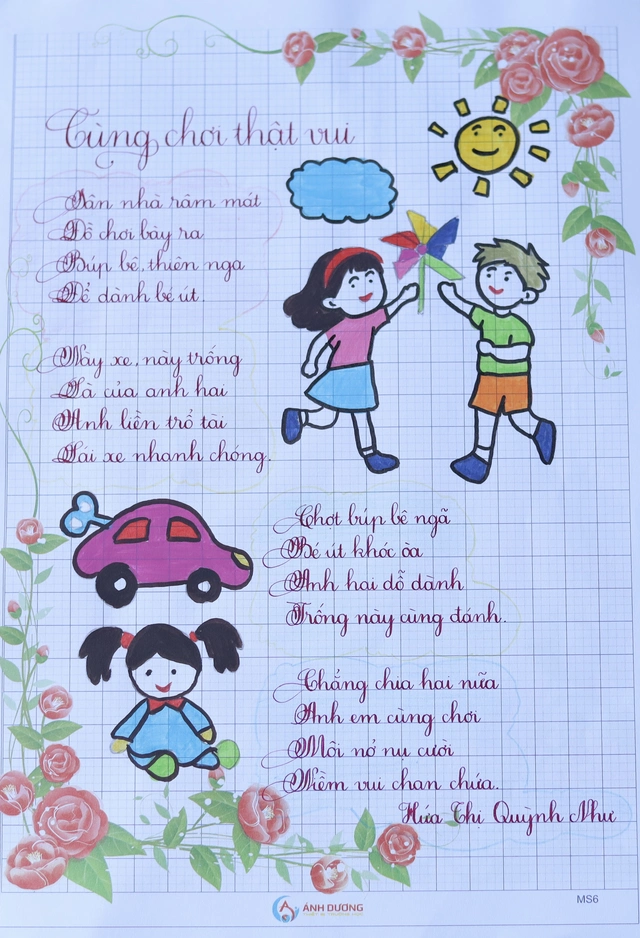 Cùng chơi thật vui
Sân nhà râm mát
Đồ chơi bày ra
Búp bê, thiên nga
Để dành bé út.
Này xe, này trống
Là của anh hai
Anh liền trổ tài
Lái xe nhanh chóng.
Chợt búp bê ngã
Bé út khóc òa
Anh hai dỗ dành
Trống này cùng đánh.
Chẳng chia hai nữa
Anh em cùng chơi
Môi nở nụ cười
Niềm vui chan chứa.
Hứa Thị Quỳnh Như
ÁNH DƯƠNG
MS6